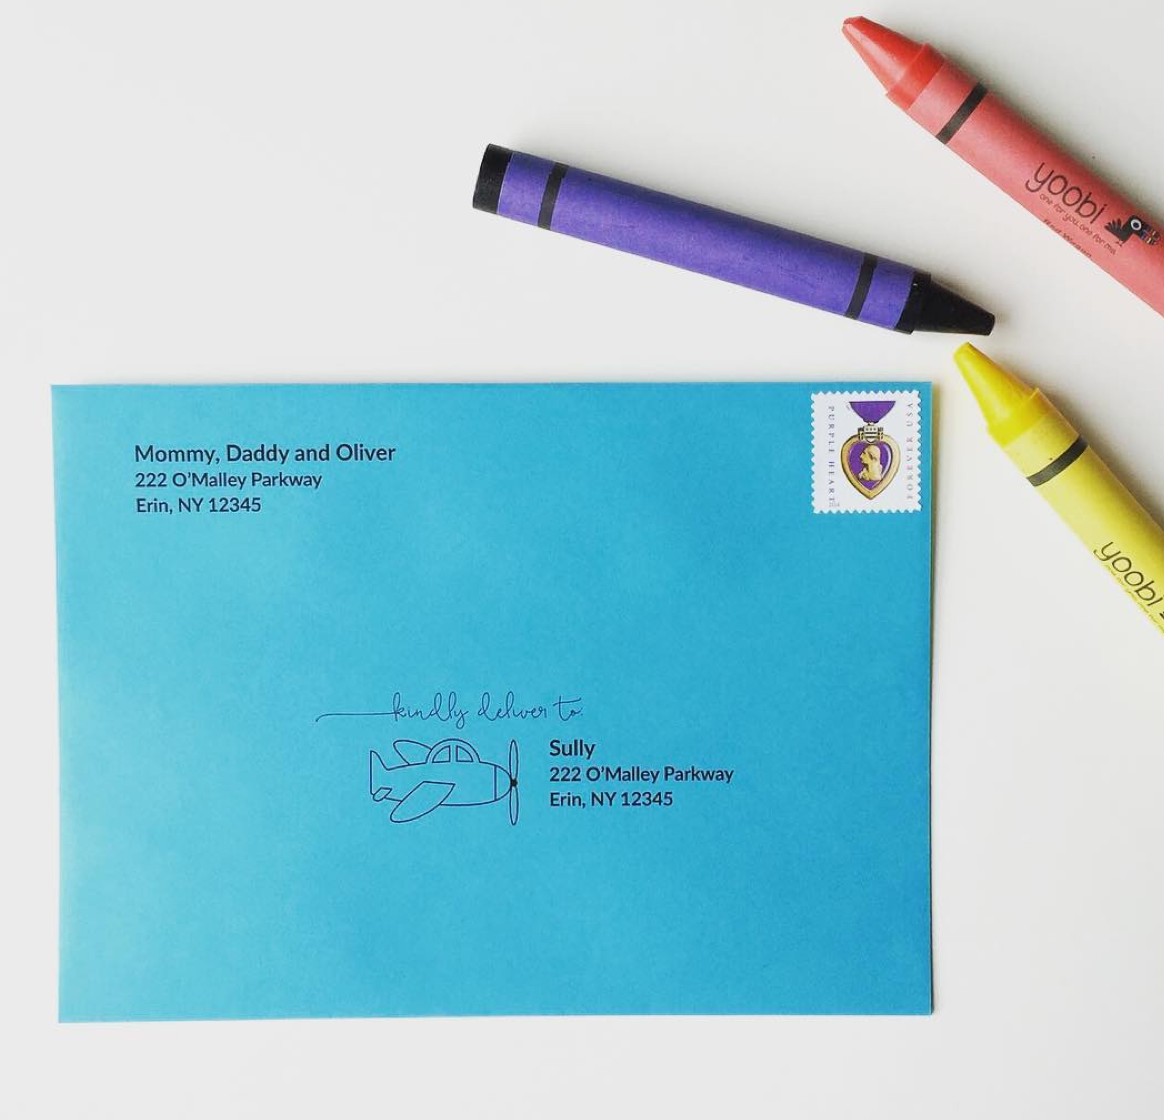 yoobi
one for you, one for me.
Mommy, Daddy and Oliver
222 O'Malley Parkway
Erin, NY 12345
PURPLE HEART
FOREVER USA
kindly deliver to:
Sully
222 O'Malley Parkway
Erin, NY 12345
yoobi